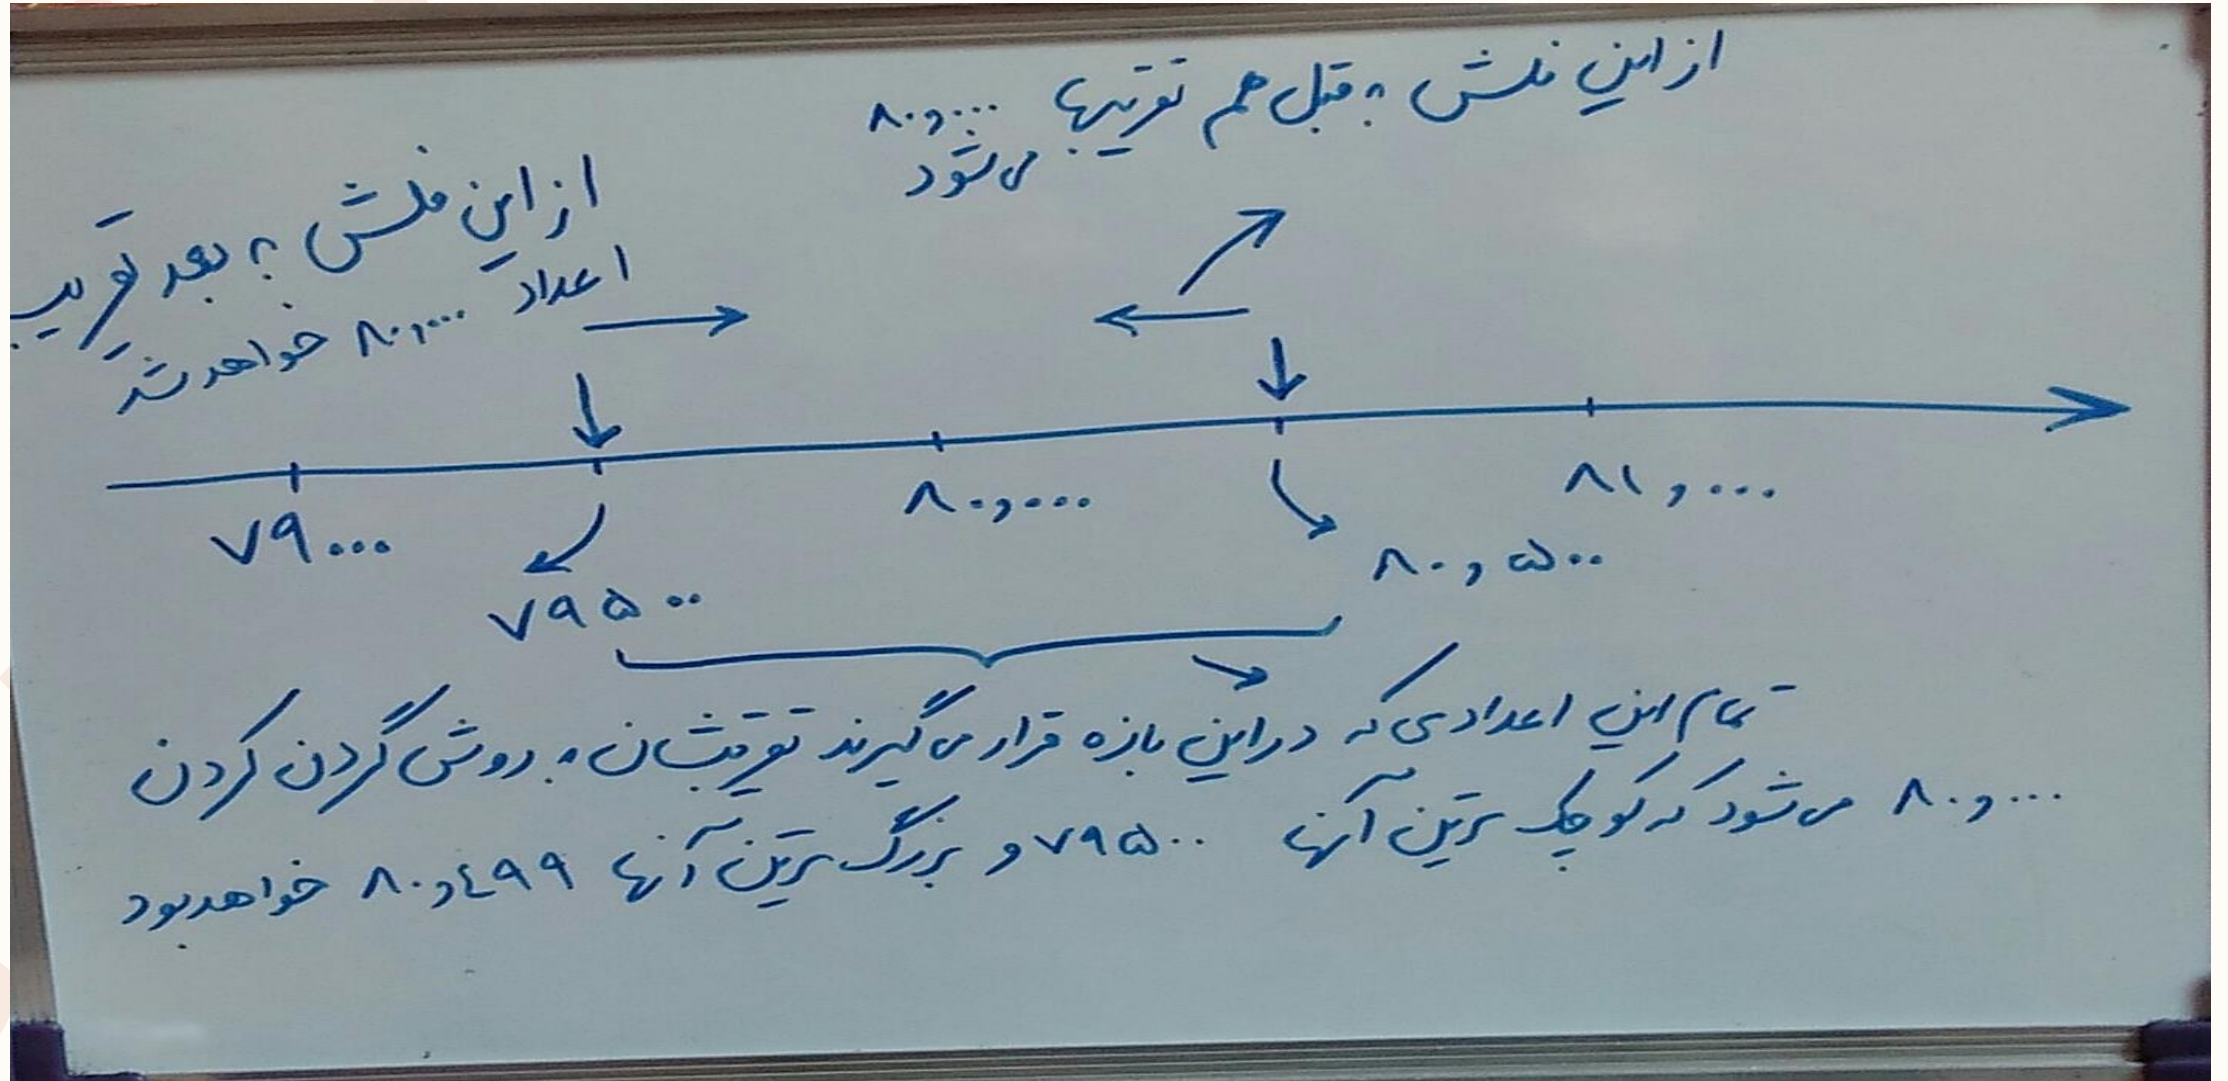 از این فلش به قبل هم تقریبها ۸۰,۰۰۰
می‌شود
از این فلش به بعد تقریب
اعداد ۸۰,۰۰۰ خواهد شد
۷۹۰۰۰
۸۰,۰۰۰
۸۱,۰۰۰
۷۹۵۰۰
۸۰,۵۰۰
تمام این اعدادی که در این بازه قرار می‌گیرند تقریبشان به روش گردن کردن
۸۰,۰۰۰ می‌شود که کوچک ترین آنها ۷۹۵۰۰ و بزرگ ترین آنها ۸۰,۴۹۹ خواهد بود